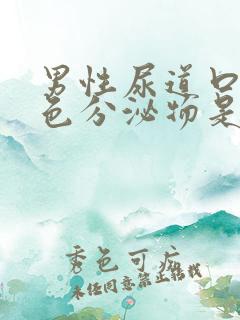 男性尿道口
色分泌物是
秀色可
未经同意禁止转载